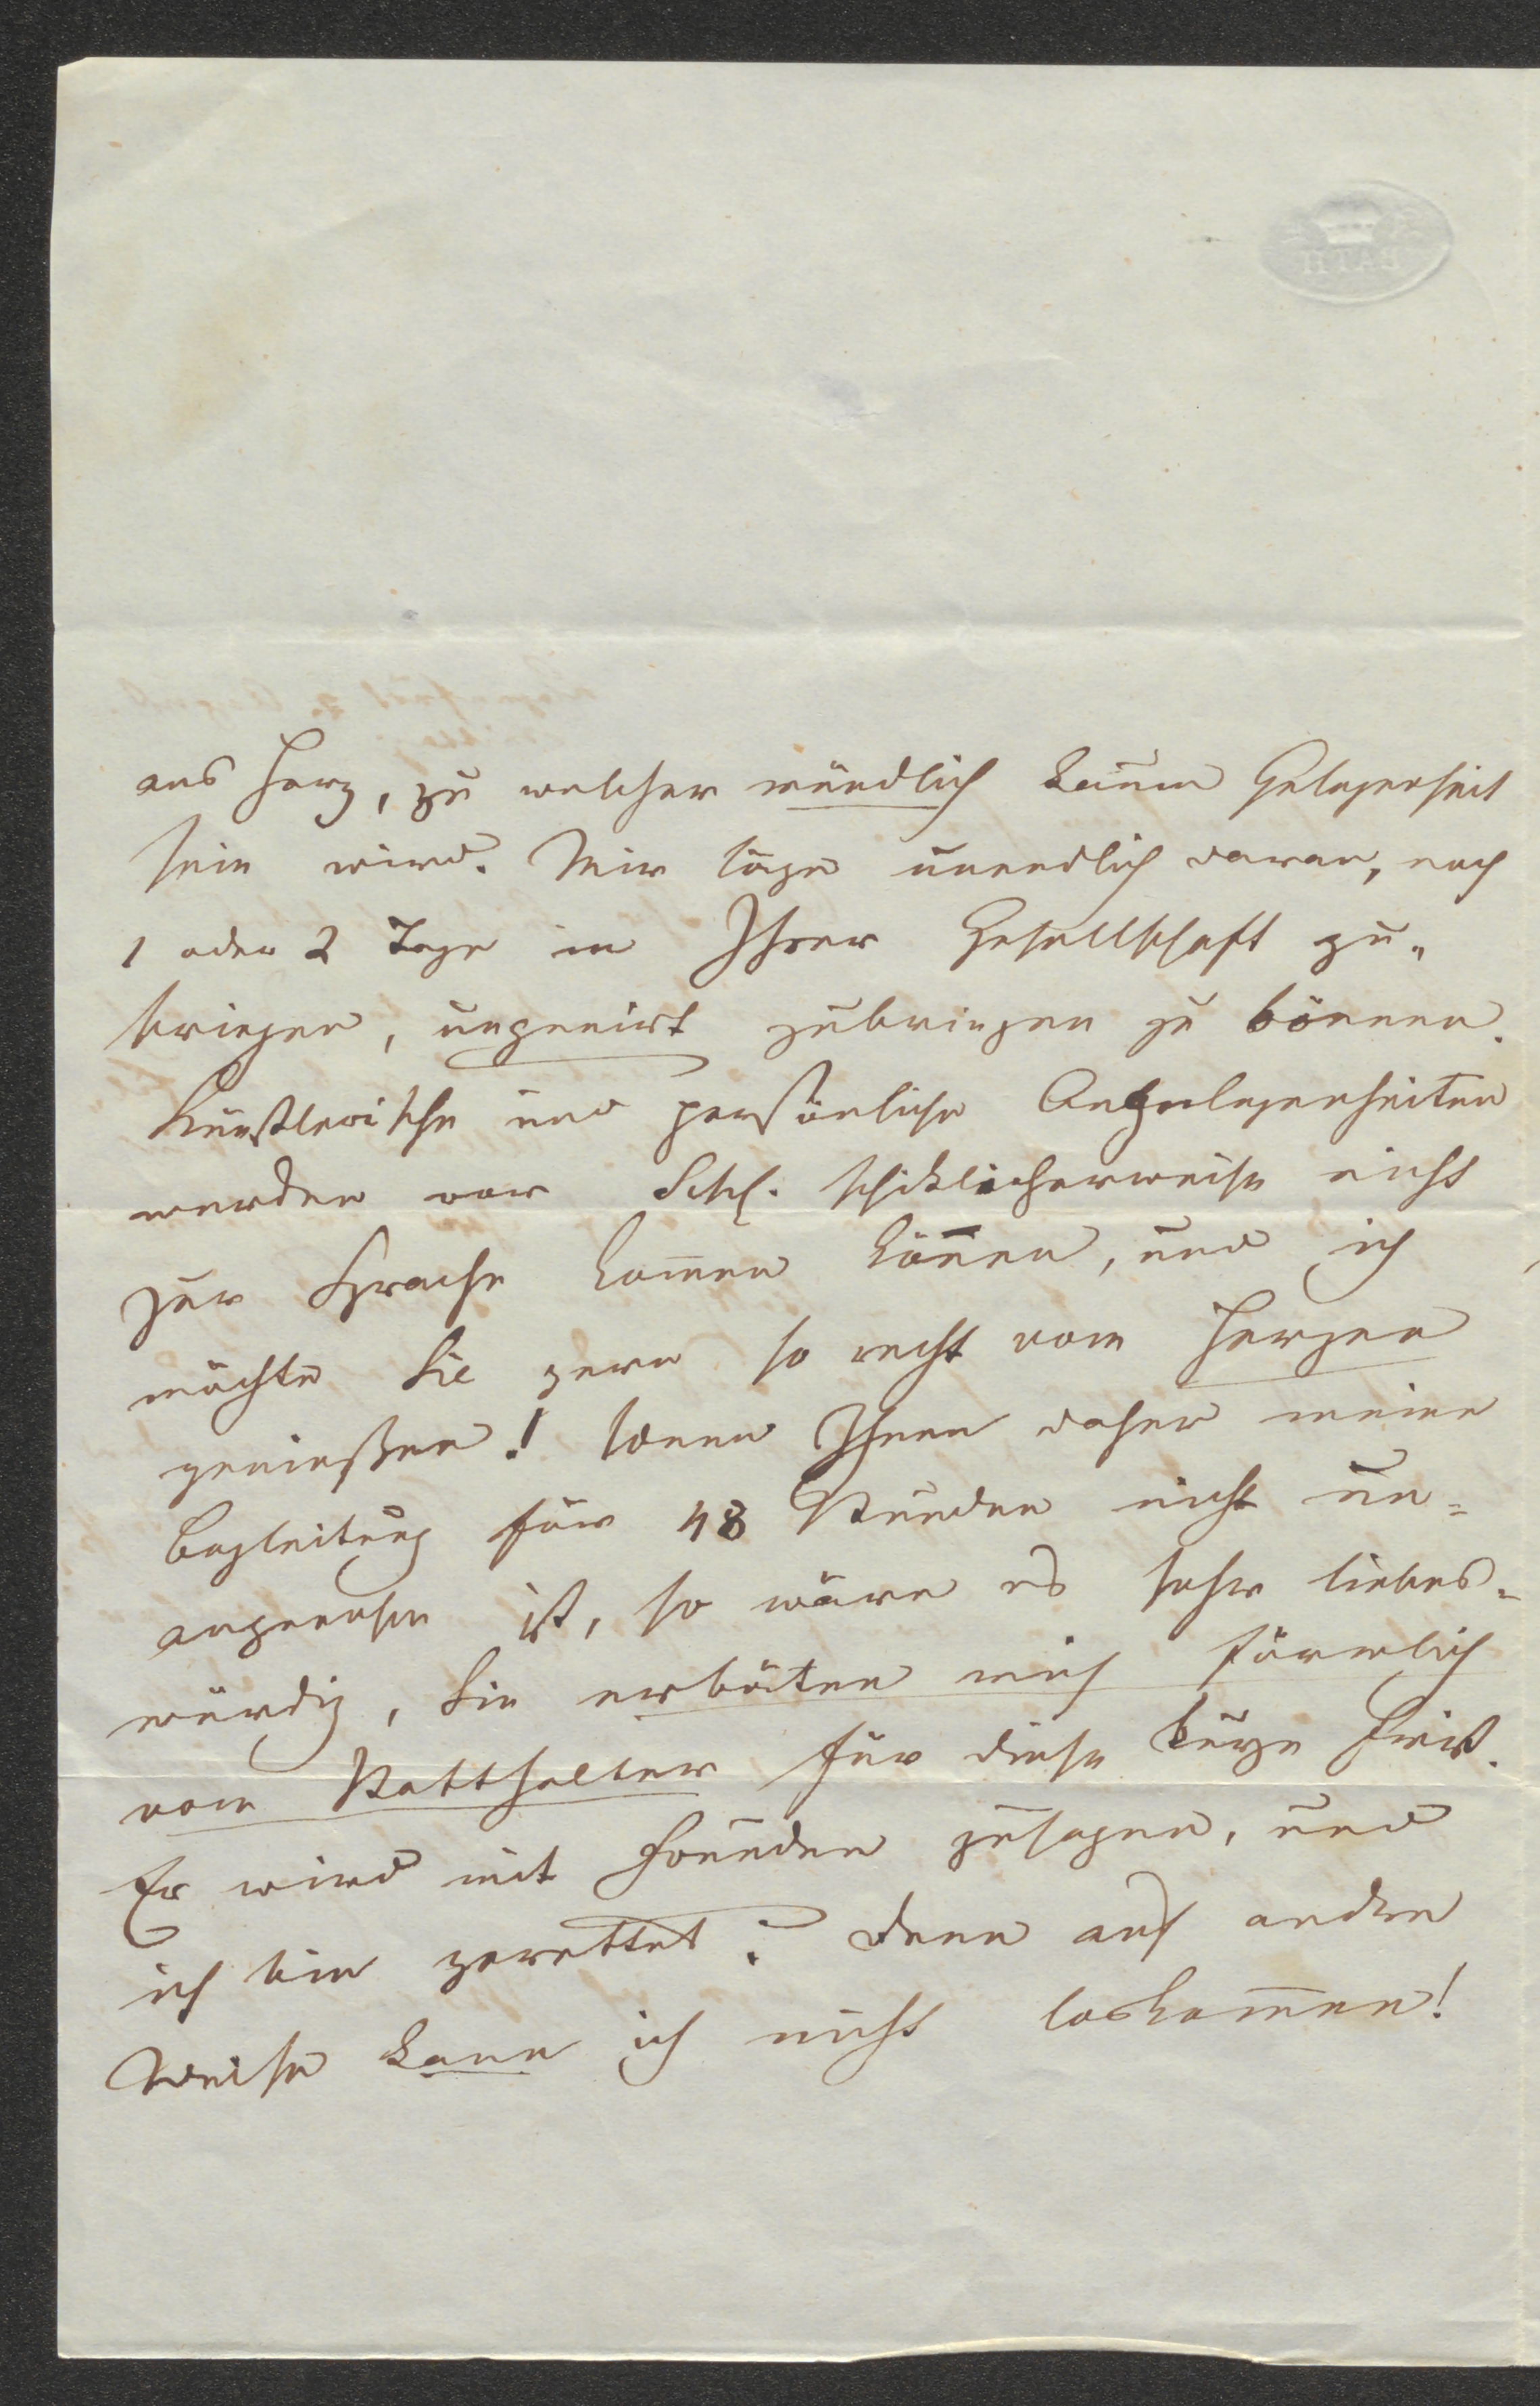 ans Herz, zu welcher mündlich kaum Gelegenheit
sein wird. Mir läge unendlich daran, noch
1 oder 2 Tage in Ihrer Gesellschaft zu-
bringen, ungenirt zubringen zu können.
Künstlerische und persönliche Angelegenheiten
werden vor Sch. schiklicherweise nicht
zur Sprache kommen können, und ich
möchte Sie gern so recht vom Herzen
genießen! Wenn Ihnen daher meine
Begleitung für 48 Stunden nicht un-
angenehm ist, so wäre es sehr liebens-
würdig, Sie erbäten mich förmlich
vom Statthalter für diese kurze Frist.
Er wird mit Freuden zusagen, und
ich bin gerettet! denn auf andre
Weise kann ich nicht loskommen!
BATH